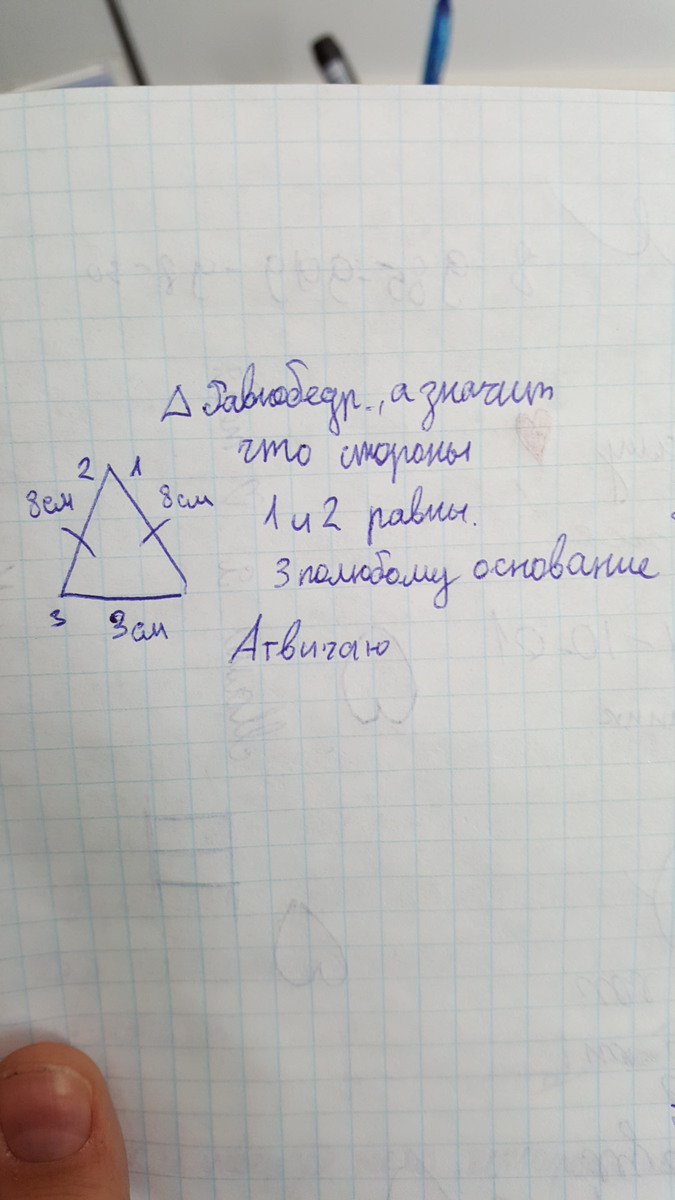 △ Равнобедр., а значит
что стороны
2 1
8см 8см
1 и 2 равны.
3 полюбому основание
3 3см
Атвичаю